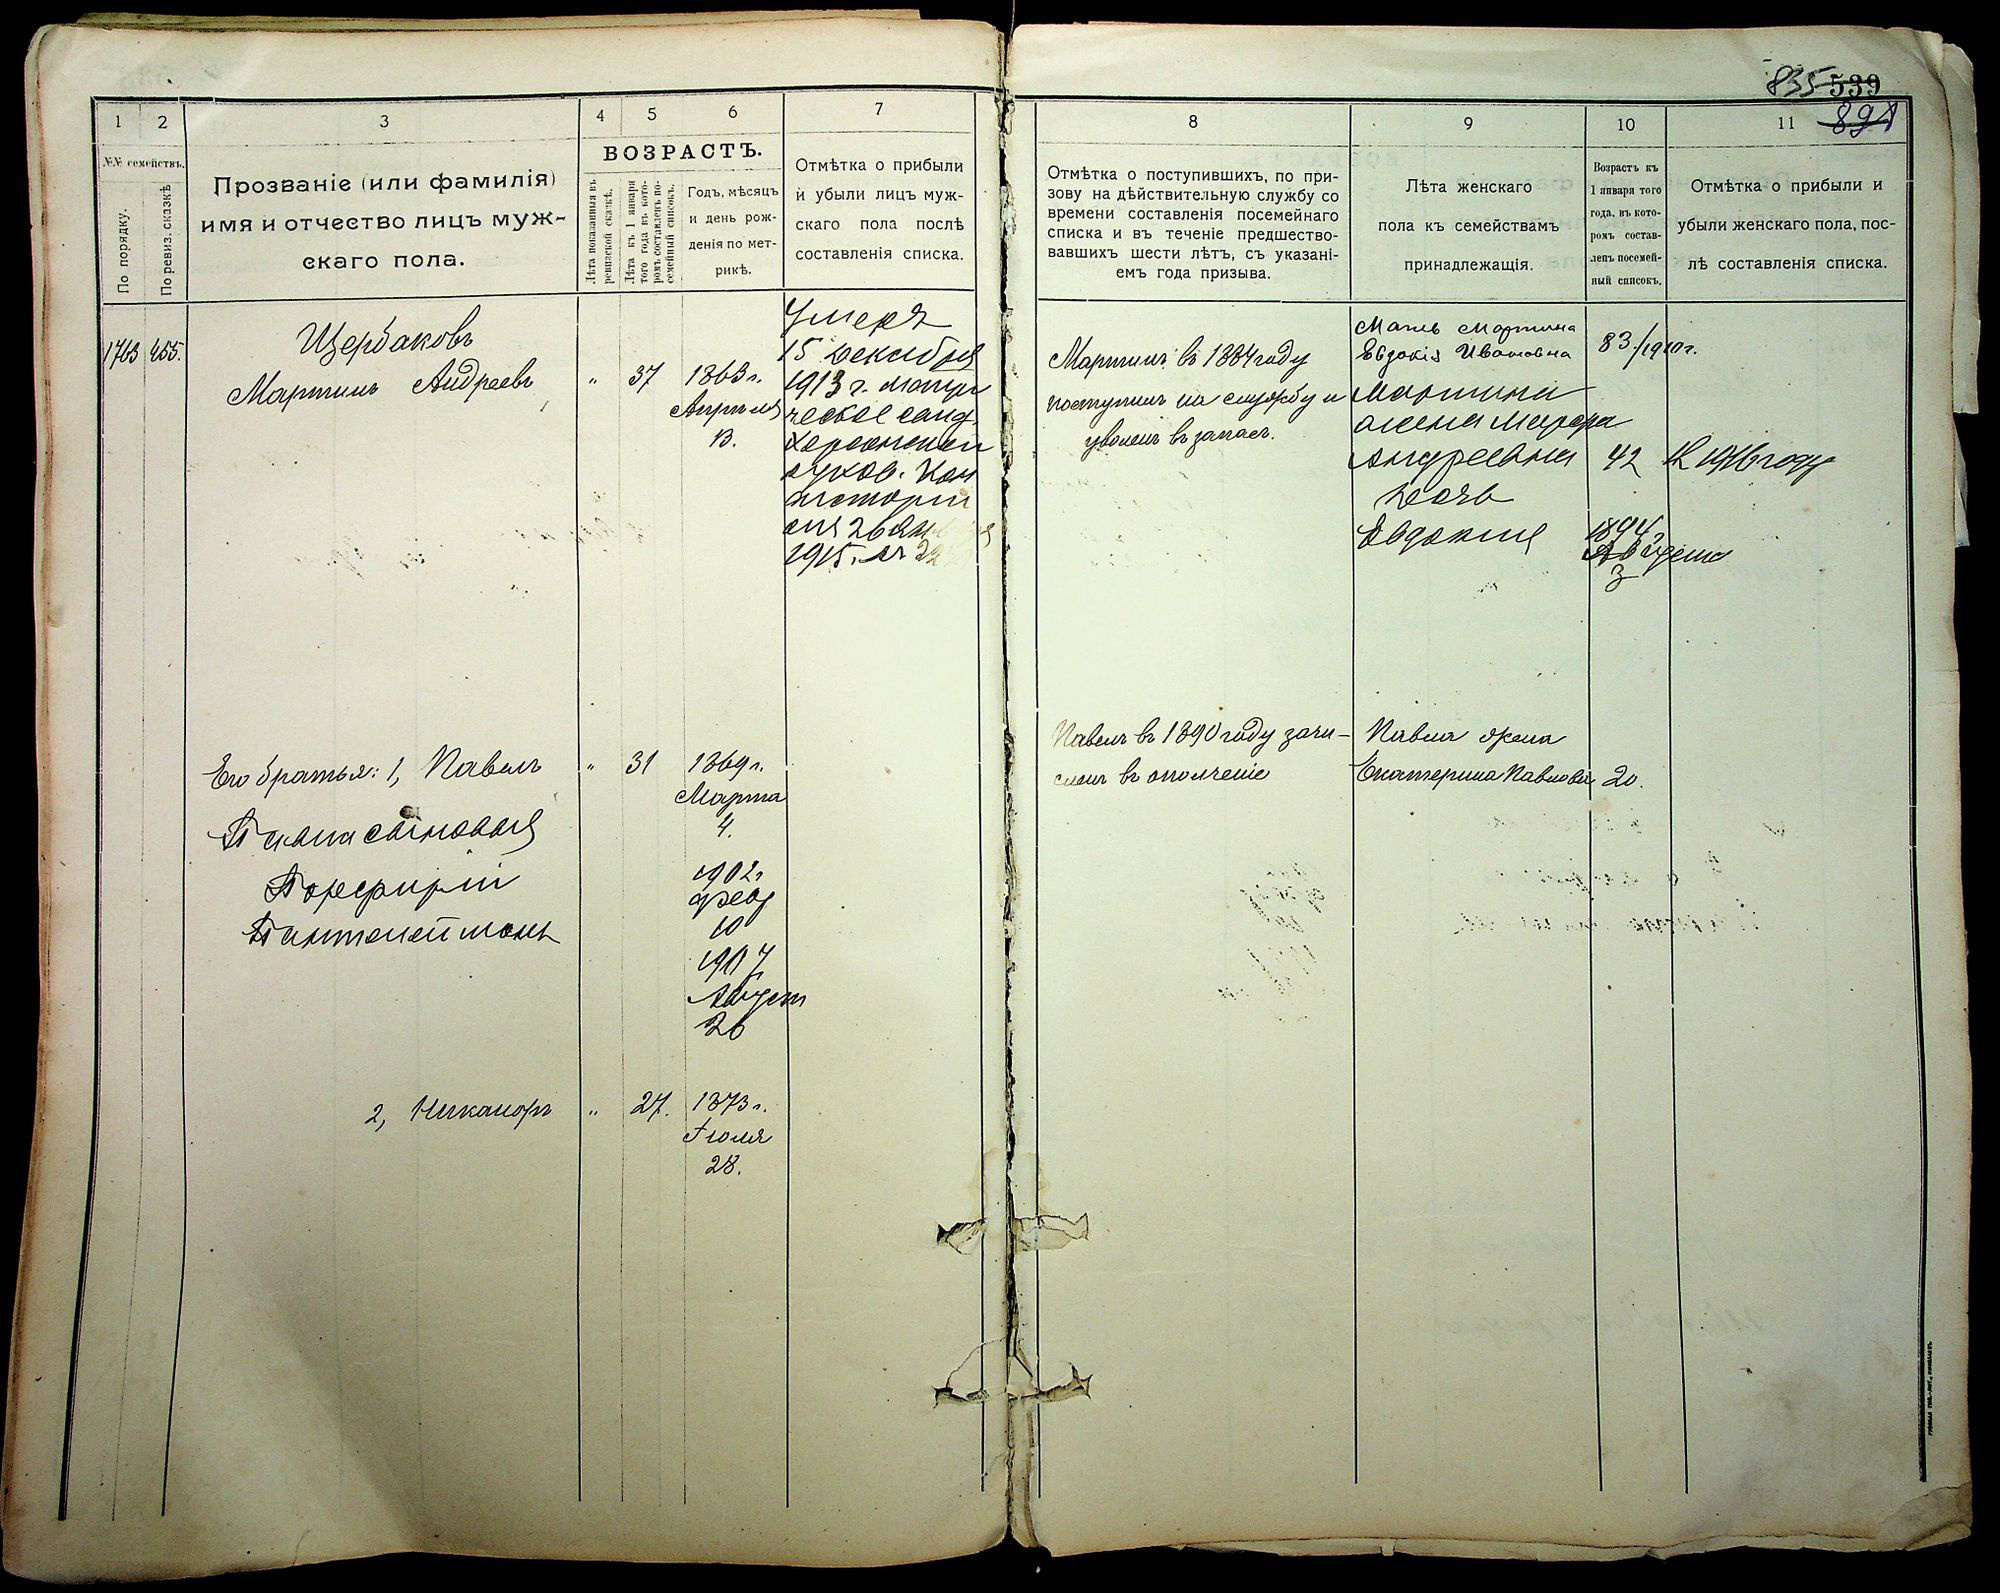 835 539
891
1
2
3
4
5
6
7
№№ семействъ.
По порядку.
По ревиз. сказкѣ
Прозваніе (или фамилія)
имя и отчество лицъ муж-
скаго пола.
ВОЗРАСТЪ.
Лѣта показанныя въ
ревизской сказкѣ.
Лѣта къ 1 января
того года въ кото-
ромъ составленъ по-
семейный списокъ.
Годъ, мѣсяцъ
и день рож-
денія по мет-
рикѣ.
Отмѣтка о прибыли
и убыли лицъ муж-
скаго пола послѣ
составленія списка.
1763 455.
Щербаковъ
Мартинъ Андреевъ
"
37
1863 г.
Апрѣля
13.
Умеръ
15 декабря
1913 г. метри
ческое свид.
Херсонской
духов. Кон
систоріи
отъ 26 Янв
1915 г. №
Его братья: 1, Павелъ
"
31
1869 г.
Марта
4.
Павла сыновья
Порфирій
1902 г
февр
10
Пантелеймонъ
1907
Август
26
2, Никаноръ
"
27.
1873 г.
Іюля
28.
8
9
10
11
Отмѣтка о поступившихъ, по при-
зову на дѣйствительную службу со
времени составленія посемейнаго
списка и въ теченіе предшество-
вавшихъ шести лѣтъ, съ указані-
емъ года призыва.
Лѣта женскаго
пола къ семействамъ
принадлежащія.
Возрастъ къ
1 января того
года, въ кото-
ромъ состав-
ленъ посемей-
ный списокъ.
Отмѣтка о прибыли и
убыли женскаго пола, пос-
лѣ составленія списка.
Мартинъ въ 1884 году
поступилъ на службу и
уволенъ въ запасъ.
Мать Мартина
Евдокія Ивановна
83./1910 г.
Мартина
жена Марфа
Андреевна
42
въ 1916 году
дочь
Евдокия
1894
Августа
3
Павелъ въ 1890 году зачи-
сленъ въ ополченіе
Павла жена
Екатерина Павлова
20.